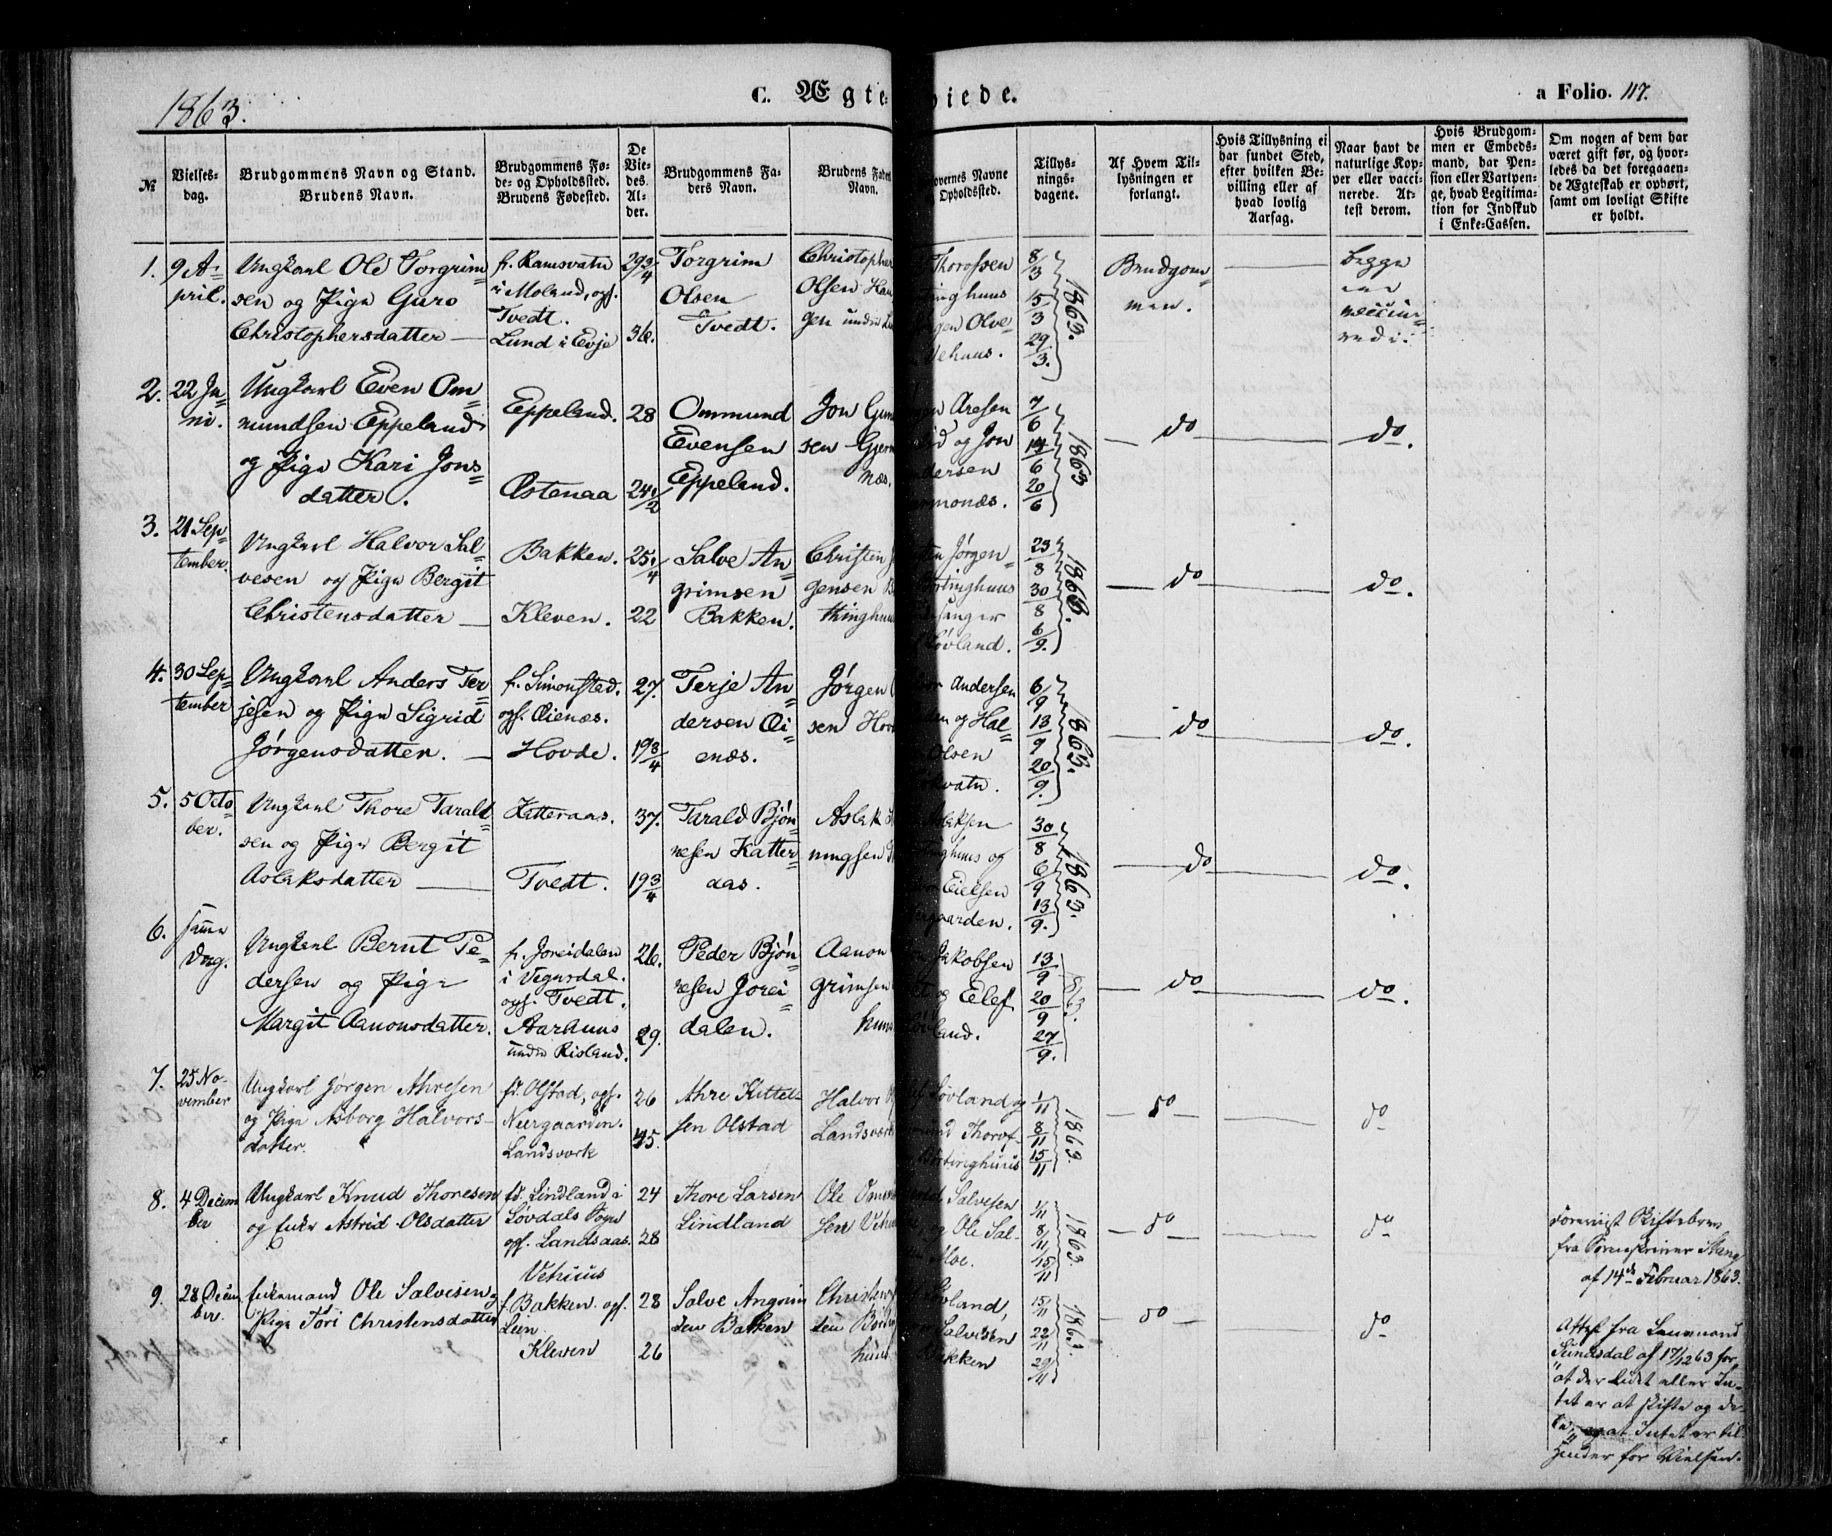 1863.
C. Ægte viede.
a Folio. 117.
№
Vielses-
dag.
Brudgommens Navn og Stand.
Brudens Navn.
Brudgommens Fø-
de- og Opholdssted.
Brudens Fødested.
De
Vie-
des
Al-
der.
Brudgommens Fa-
ders Navn.
Brudens Faders
Navn.
overnes Navne
Opholdssted.
Tillys-
nings-
dagene.
Af Hvem Til-
lysningen er
forlangt.
Hvis Tillysning ei
har fundet Sted,
efter hvilken Be-
villing eller af
hvad lovlig
Aarsag.
Naar havt de
naturlige Kop-
per eller vacci-
nerede. At-
test derom.
Hvis Brudgom-
men er Embeds-
mand, har Pen-
sion eller Vartpen-
ge, hvad Legitima-
tion for Indskud
i Enke-Cassen.
Om nogen af dem har
været gift før, og hvor-
ledes da det foregaaen-
de Ægteskab er ophørt,
samt om lovligt Skifte
er holdt.
1.
9 A-
pril.
Ungkarl Ole Torgrim-
sen og Pige Guro
Christophersdatter
f. Ramsvatn
i Moland, ops.
Tvedt.
Lund i Evje
29 3/4
36.
Torgrim
Olsen
Tvedt.
Christopher
Olsen
gen under
Thorossen
tinghuus
gen Olve-
Vehuus.
8/3
15/3
29/3.
1863.
Brudgom-
men.
begge
ere
vaccine-
rede.
2.
22 Ju-
ni.
Ungkarl Even Om-
mundsen Eppeland
og Pige Kari Jons-
datter.
Eppeland.
Østenaa
28
24 1/2
Ommund
Evensen
Eppeland.
Jon Gun
sen Gjerm
næs.
Aresen
og Jon
dersen
rmonæs.
7/6
14/6
20/6
1863
do
do.
3.
21 Sep-
tember.
Ungkarl Halvor Sal-
vesen og Pige Bergit
Christensdatter
Bakken.
Kleven.
25 1/4
22
Salve An-
grimsen
Bakken.
Christen J
gensen B
thinghuus
Jørgen-
rtinghuus
sanger
Løvland.
23/8
30/8
6/9.
1863.
do
do.
4.
30 Sep-
tember
Ungkarl Anders Ter-
jesen og Pige Sigrid
Jørgensdatter.
f. Simonsted.
ops. Øienæs.
Hovde.
27.
19 3/4
Terje An-
dersen Øi-
enæs.
Jørgen
sen Hov
Andersen
og Hal-
Olsen
vatn.
6/9
13/9
20/9.
1863.
do
do.
5.
5 Octo-
ber.
Ungkarl Thore Tarald-
sen og Pige Bergit
Aslaksdatter
Katteraas.
Tvedt.
37.
19 3/4
Tarald Bjøn-
nesen Katter-
aas.
Aslak
ningsen
Aslaksen
tinghuus og
Eielsen
gaarden.
30/8
6/9
13/9.
1863.
do
do.
6.
samme
Dag.
Ungkarl Bernt Pe-
dersen og Pige
Margit Aanonsdatter.
f. Joreidalen
i Vegusdal.
ops. Tvedt.
Aarhuus
under Risland.
26.
29.
Peder Bjøn-
nesen Jorei-
dalen.
Aanon
grimsen
huus
Jakobsen
og Elef
land.
13/9
20/9
27/9.
1863.
do
do.
7.
25 No-
vember
Ungkarl Jørgen Ahresen
og Pige Asborg Halvors-
datter.
fd. Olstad, ops.
Neergaarden.
Landsverk
26
45.
Ahre Kittel-
sen Olstad
Halvor
Landsverk
Løvland og
Thorof-
tinghuus
1/11
8/11
15/11
1863.
do
do
8.
4 Decem
ber
Ungkarl Knud Thoresen
og Enke Astrid Olsdatter
fd. Lindland i
Løvdals Sogn
ops. Landsaas.
Vehuus
24
28
Thore Larsen
Lindland
Ole Om
sen Vehu
Salvesen
og Ole Sal-
Moe.
1/11
8/11
15/11
1863.
do
do
Foreviist Skiftebrev
fra Sorenskriver Stang
af 14de Februar 1863.
9.
28 Decem
ber.
Enkemand Ole Salvesen og
Pige Tori Christensdatter
f. Bakken. ops.
Lien
Kleven
28
26
Salve Angrim
sen Bakken
Christen
sen Bortin
huus
Løvland,
Salvesen
Bakken
15/11
22/11
29/11
1863.
do
do
Attest fra Lensmand
Sundsdal af 17/12 63 for
"at der lidet eller In-
tet er at skifte og de-
le," og at Intet er til
Hinder for Vielsen.